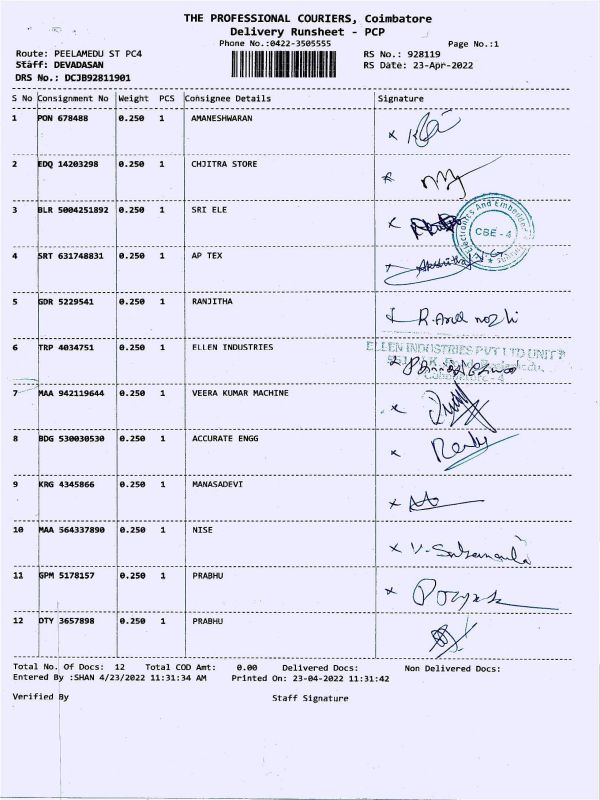 THE PROFESSIONAL COURIERS, Coimbatore
Delivery Runsheet - PCP
Phone No.:0422-3505555
Page No.:1
Route: PEELAMEDU ST PC4
Staff: DEVADASAN
DRS No.: DCJB92811901
RS No.: 928119
RS Date: 23-Apr-2022
S No Consignment No Weight PCS Consignee Details Signature
1 PON 678488 0.250 1 AMANESHWARAN
2 EDQ 14203298 0.250 1 CHJITRA STORE
3 BLR 5004251892 0.250 1 SRI ELE
Electronics And Embedded
CBE - 4
4 SRT 631748831 0.250 1 AP TEX
5 GDR 5229541 0.250 1 RANJITHA
6 TRP 4034751 0.250 1 ELLEN INDUSTRIES
ELLEN INDUSTRIES PVT LTD UNIT
Coimbatore - 4
7 MAA 942119644 0.250 1 VEERA KUMAR MACHINE
8 BDG 530030530 0.250 1 ACCURATE ENGG
9 KRG 4345866 0.250 1 MANASADEVI
10 MAA 564337890 0.250 1 NISE
11 GPM 5178157 0.250 1 PRABHU
12 OTY 3657898 0.250 1 PRABHU
Total No. Of Docs: 12 Total COD Amt: 0.00 Delivered Docs: Non Delivered Docs:
Entered By :SHAN 4/23/2022 11:31:34 AM Printed On: 23-04-2022 11:31:42
Verified By Staff Signature